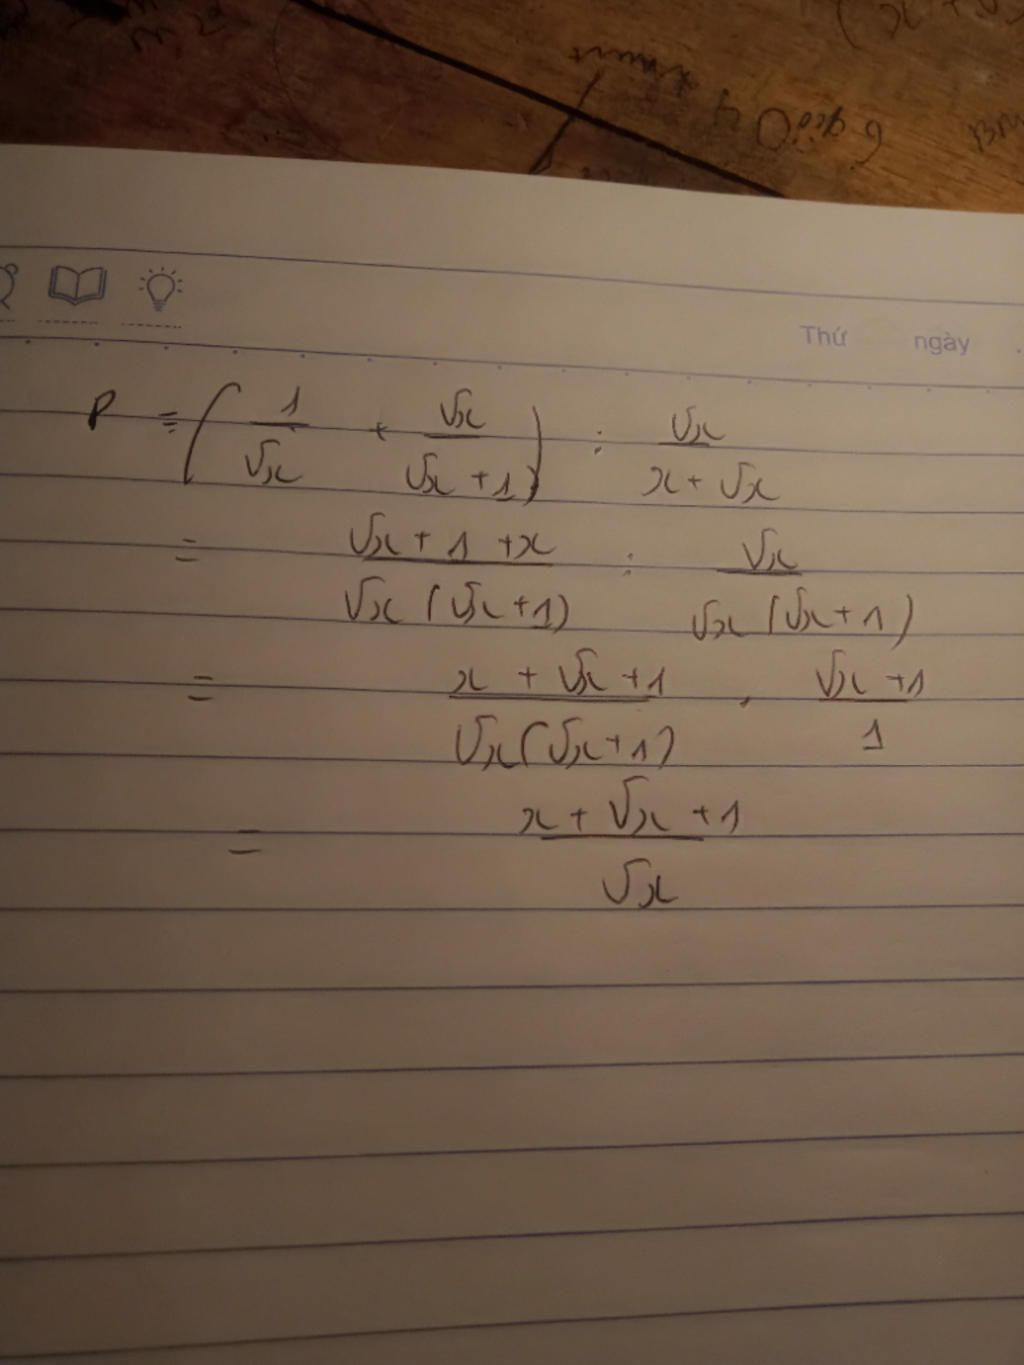 6 giờ 04
Thứ ngày
P = ( 1/√x + √x/(√x + 1) ) : √x/(x + √x)
= (√x + 1 + x)/(√x (√x + 1)) : √x/(√x (√x + 1))
= (x + √x + 1)/(√x (√x + 1)) . (√x + 1)/1
= (x + √x + 1)/√x